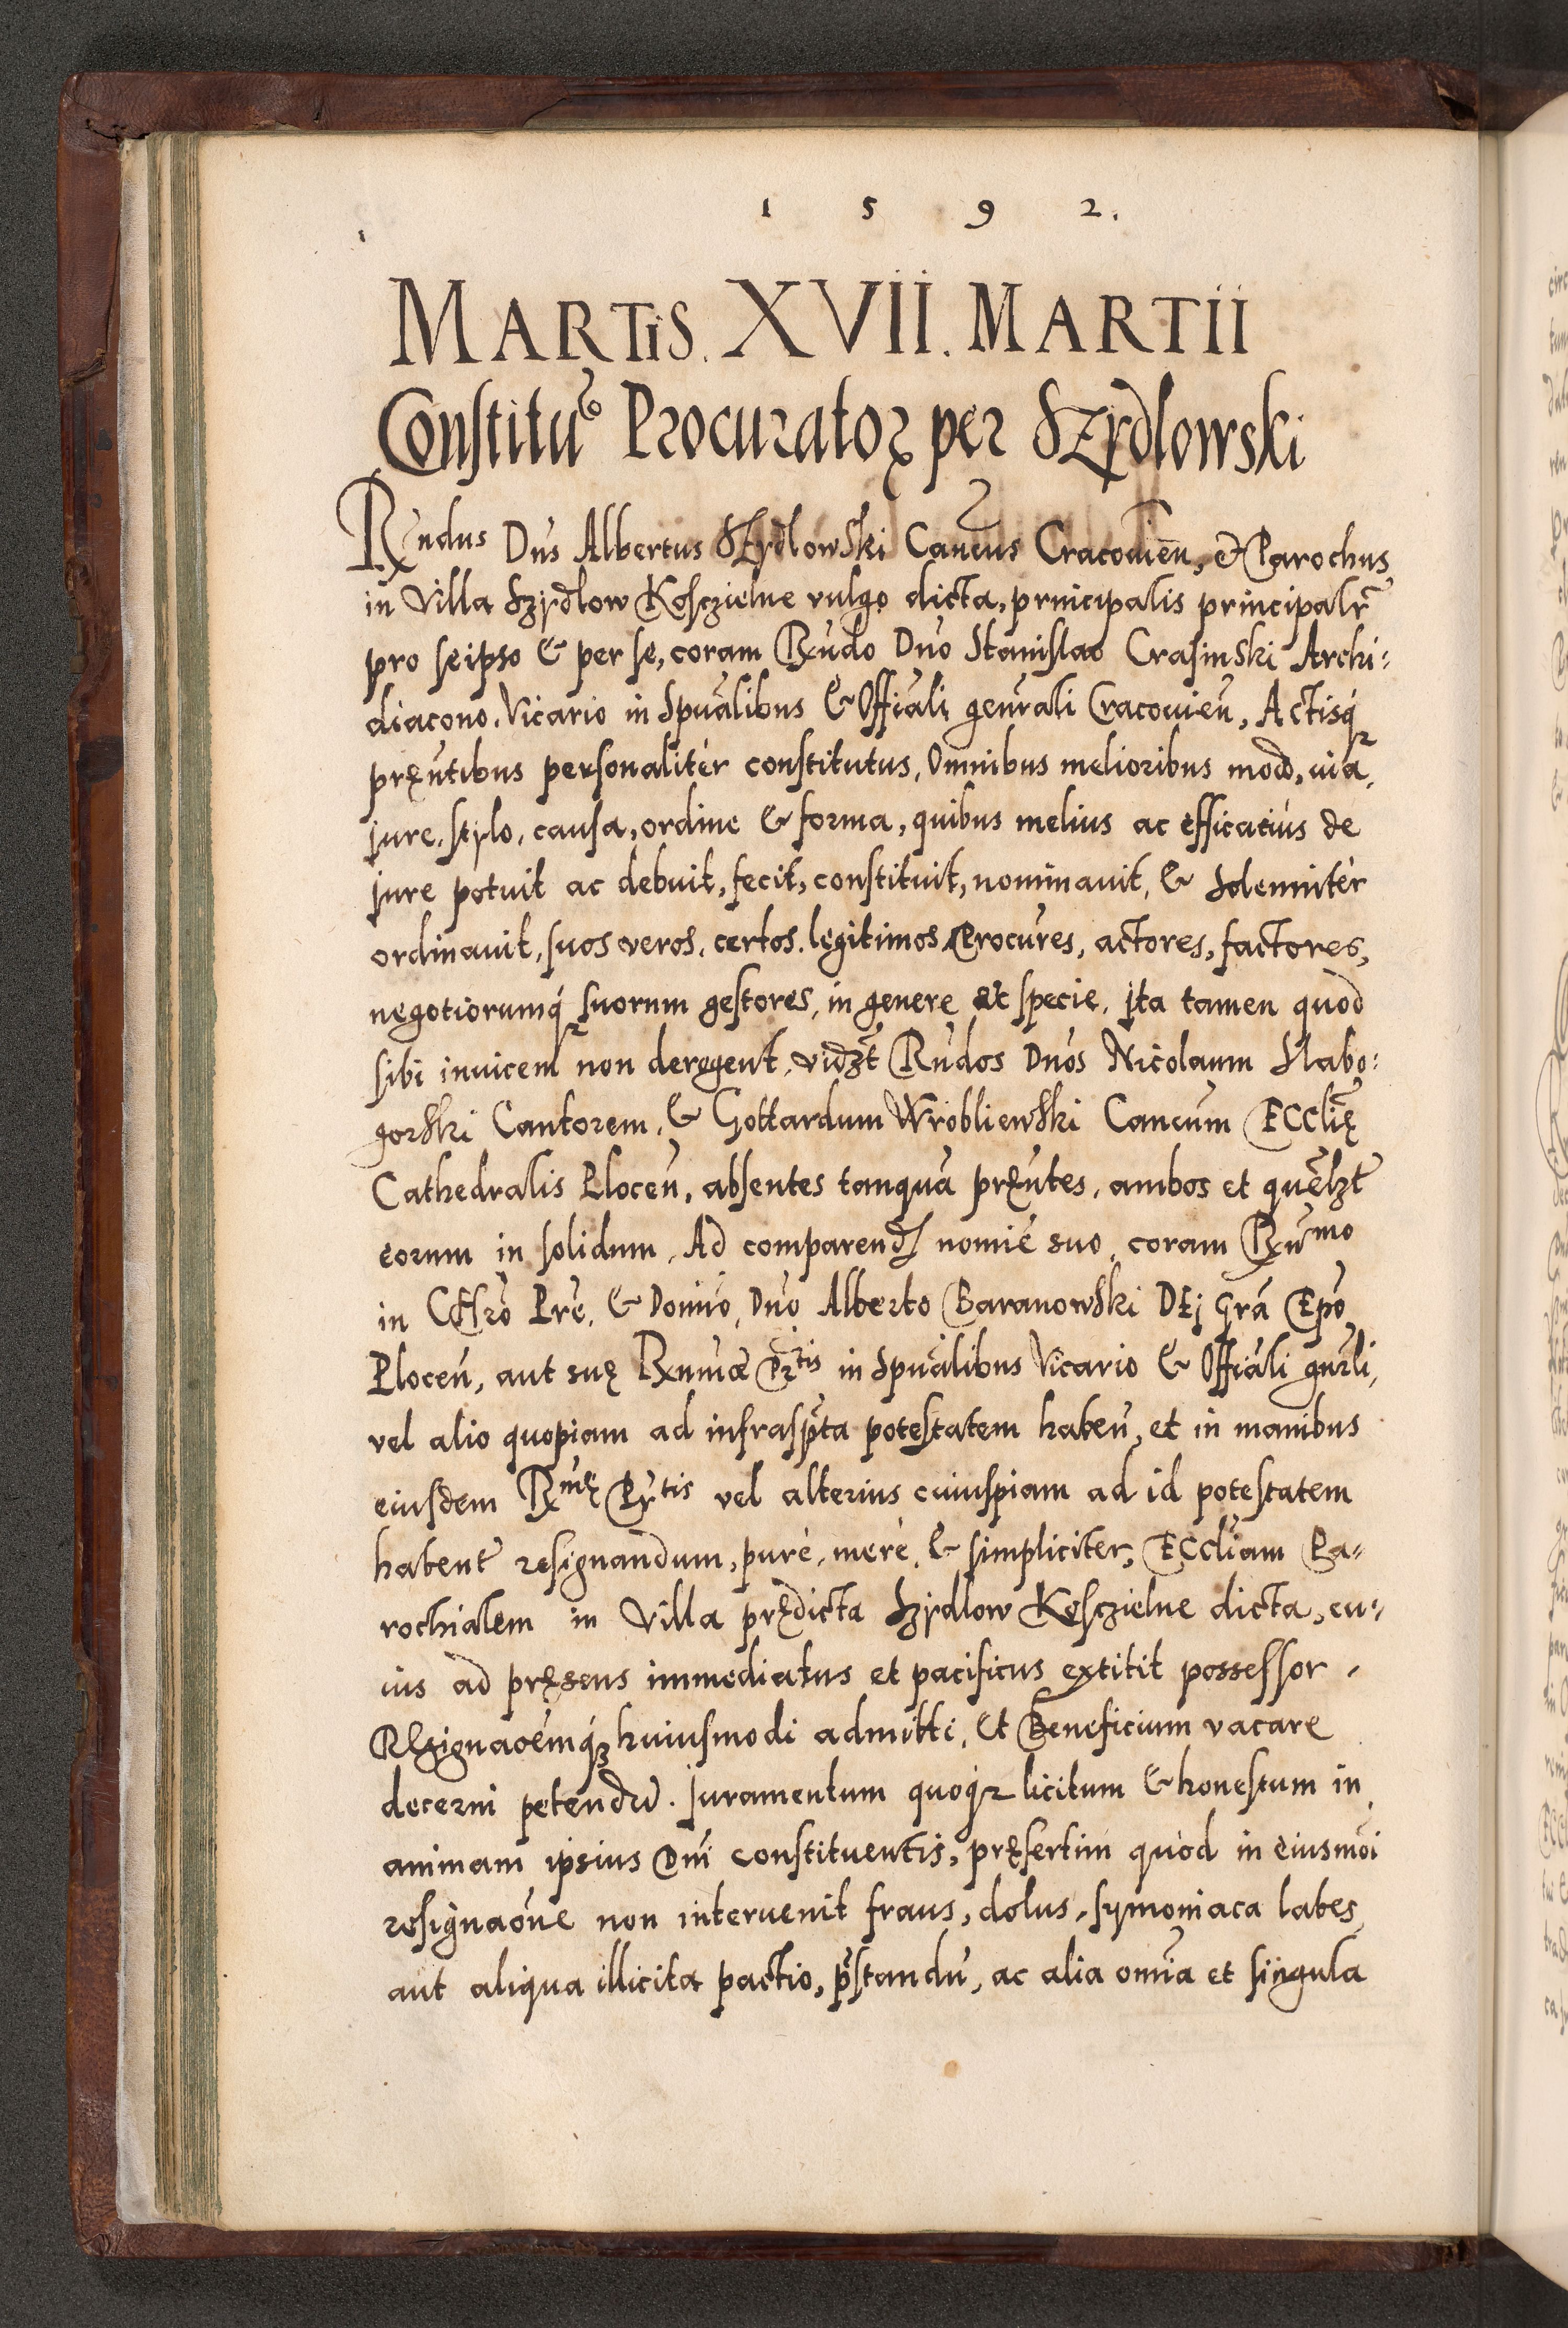 1 5 9 2.
MARTiS. XVII. MARTII
Constitu͠o Procurator per Szydlowski
Rndus Dn͠s Albertus Szydlowski Can͠cus Cracouien͠, et Parochus
in Villa Szydlow Kosczielne vulgo dicta, principalis principalr͠
pro seipso & per se, coram Rn͠do Dn͠o Stanislao Crasinski Archi⹀
diacono, Vicario in Spu͠alibus & Offi͠ali gen͠rali Cracouien͠, Actisq́
pręn͠tibus personalitèr constitutus, Omnibus melioribus modo, uia,
jure, stylo, causa, ordine & forma, quibus melius ac efficatiùs de
jure potuit ac debuit, fecit, constituit, nominauit, & solennitèr
ordinauit, suos veros, certos, legitimos Procu͠res, actores, factores,
negotiorumq́ suorum gestores, in genere et specie, jta tamen quod
sibi inuicem non derogent, vidzt͠ Rn͠dos Dn͠os Nicolaum Slabo⹀
gorski Cantorem, & Gottardum Wrobliewski Can͠cum ECCli͠ę
Cathedralis Plocen͠, absentes tanquā pręn͠tes, ambos et que͠lzt͠
eorum in solidum, Ad comparend nomi͠e suo, coram Rn͠mo
in CHr͠o Pr͠e, & Domi͠o, Dn͠o Alberto Baranowski DEj gr͠a Ep͠o
Plocen͠, aut suę Rnmæ Pr͠tis in Spu͠alibus Vicario & Offi͠ali gnr͠li,
vel alio quopiam ad infrasp͠ta potestatem haben͠, et in manibus
eiusdem Rmę Pr͠tis vel alterius cuiuspiam ad id potestatem
habent͠ resignandum, purè, merè, & simpliciter, ECCli͠am Pa⹀
rochialem in Villa prędicta Szydlow Kosczielne dicta, cu⹀
ius ad pręsens immediatus et pacificus extitit possessor,
REsignao͠emq́ꝫ huiusmodi admitti, et Beneficium vacare
decerni petendū. Juramentum quoq́ licitum & honestum in
animam ipsius Dn͠i constituentis, pręsertim quòd in eiusmo͠i
resignao͠ne non interuenit fraus, dolus, symoniaca labes,
aut aliqua illicita pactio, p͠standū, ac alia omn͠ia et singula